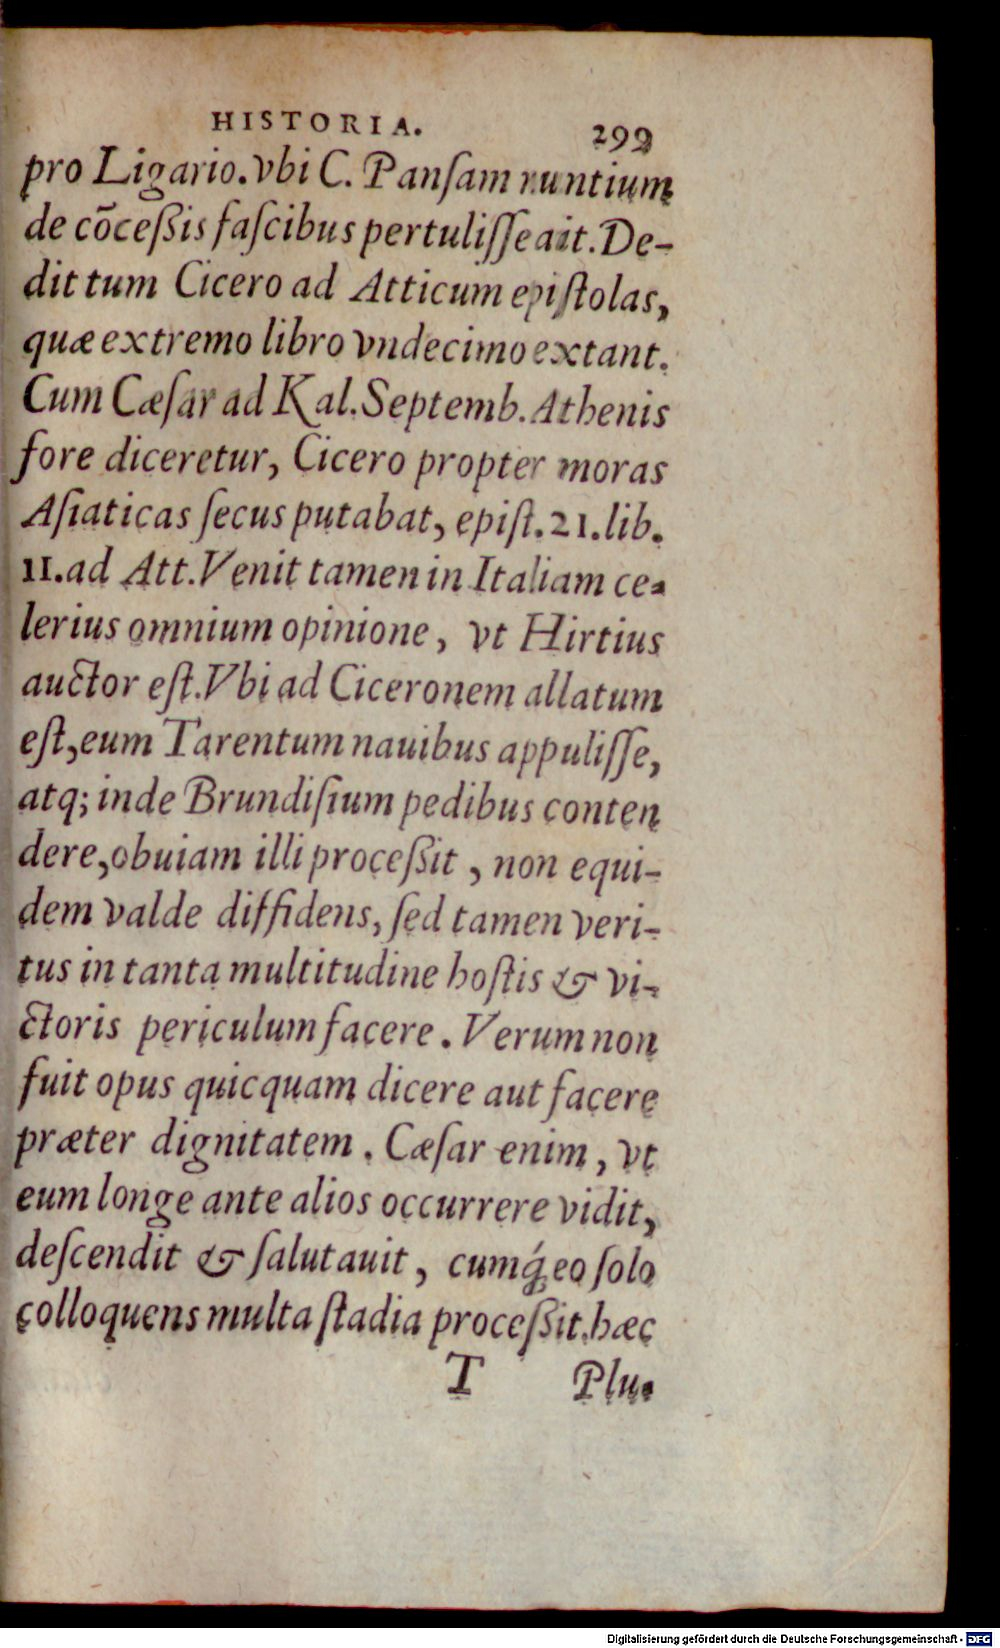 HISTORIA. 299
pro Ligario. vbi C. Panſam nuntium
de cōceßis faſcibus pertuliſſe ait. De-
dit tum Cicero ad Atticum epiſtolas,
quæ extremo libro vndecimo extant.
Cum Cæſar ad Kal. Septemb. Athenis
fore diceretur, Cicero propter moras
Aſiaticas ſecus putabat, epiſt. 21. lib.
11. ad Att. Venit tamen in Italiam ce-
lerius omnium opinione, vt Hirtius
auctor eſt. Vbi ad Ciceronem allatum
eſt, eum Tarentum nauibus appuliſſe,
atq; inde Brundiſium pedibus conten
dere, obuiam illi proceßit, non equi-
dem valde diffidens, ſed tamen veri-
tus in tanta multitudine hoſtis & vi-
ctoris periculum facere. Verum non
fuit opus quicquam dicere aut facere
præter dignitatem. Cæſar enim, vt
eum longe ante alios occurrere vidit,
deſcendit & ſalutauit, cumq́; eo ſolo
colloquens multa ſtadia proceßit. hæc
T Plu-
Digitalisierung gefördert durch die Deutsche Forschungsgemeinschaft - DFG